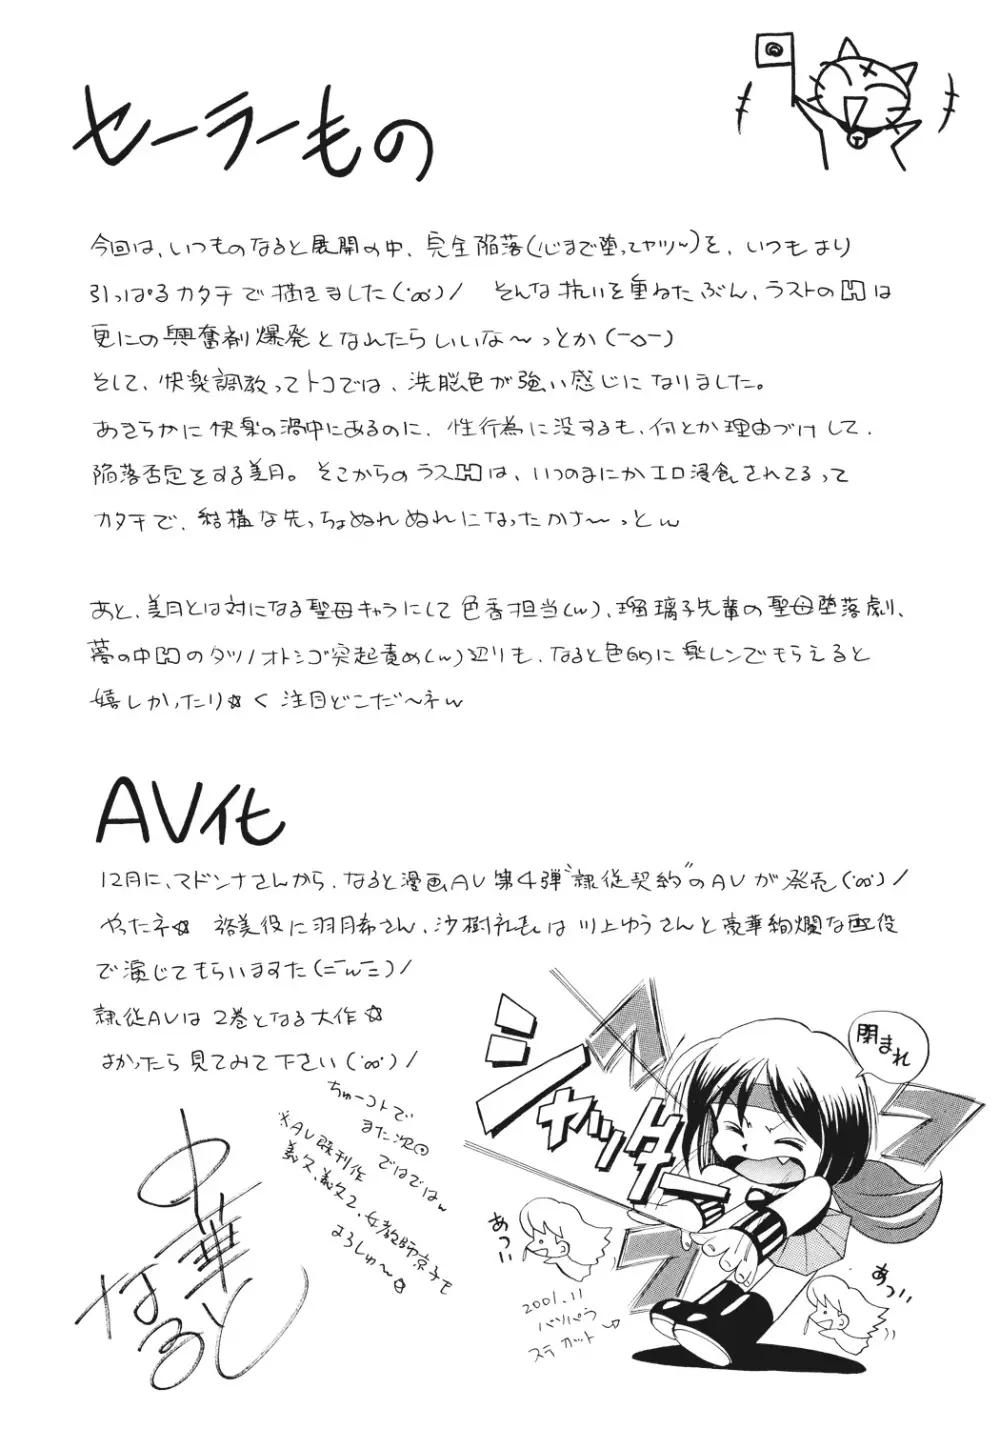 セーラーもの
今回は、いつものなると展開の中、完全陥落(心まで堕ってヤツ〜)を、いつもより
引っぱるカタチで描きました(･∞･)/ そんな抗いを重ねたぶん、ラストのHは
更にの興奮剤爆発となれたらいいな〜っとか(ー◇ー)
そして、快楽調教ってトコでは、洗脳色が強い感じになりました。
あきらかに快楽の渦中にあるのに、性行為に没するも、何とか理由づけして、
陥落否定をする美月。そこからのラスHは、いつのまにかエロ浸食されてるって
カタチで、結構な先っちょぬれぬれになったかな〜っとw
あと、美月とは対になる聖母キャラにして色香担当(w)、瑠璃子先輩の聖母堕落劇、
夢の中間のタツノオトシゴ突起責め(w)辺りも、なると色的に楽しンでもらえると
嬉しかったり☆く 注目どこだ〜ネw
AV化
12月に、マドンナさんから、なると漫画AV第4弾"隷従契約"のAVが発売(･∞･)/
やったネ☆ 裕美役に羽月希さん、沙樹礼美は川上ゆうさんと豪華絢爛な配役
で演じてもらいますた(ﾆｰwｰﾆ)/
隷従AVは2巻となる大作☆
よかったら見てみて下さい(･∞･)/
ちゅーコトで
また次◎
ではではw
※AV既刊作
義父、義父2、女教師京子も
よろしゅ〜☆
中華なると
シャッッター
閉まれ
あっつい
あっつい
2001.11
バツパラ
ステカット